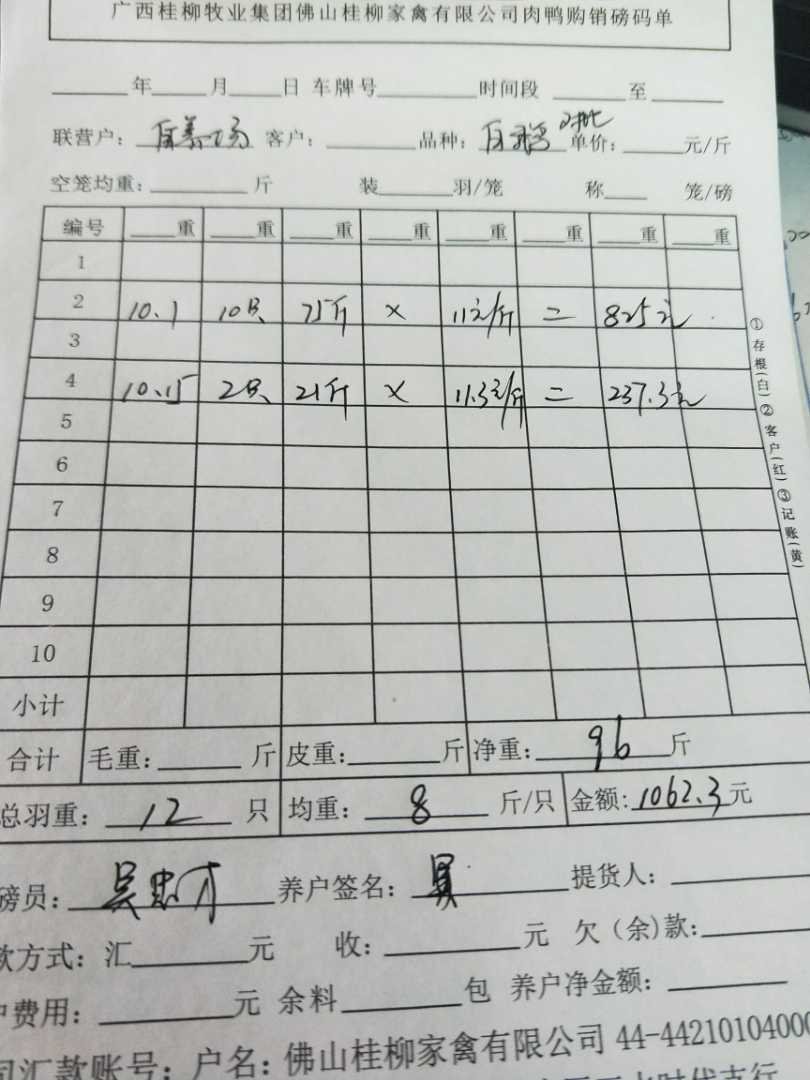 广西桂柳牧业集团佛山桂柳家禽有限公司肉鸭购销磅码单
年 月 日 车牌号 时间段 至
联营户: 自养场 客户: 品种: 白 单价: 元/斤
空笼均重: 斤 装 羽/笼 称 笼/磅
编号 重 重 重 重 重 重 重 重
1
2 10.1 10只 75斤 × 11元/斤 = 825元
3
4 10.15 2只 21斤 × 11.3元/斤 = 237.3元
5
6
7
8
9
10
小计
合计 毛重: 斤 皮重: 斤 净重: 96 斤
总羽重: 12 只 均重: 8 斤/只 金额: 1062.3 元
磅员: 吴忠才 养户签名: 提货人:
款方式: 汇 元 收: 元 欠(余)款:
户费用: 元 余料 包 养户净金额:
司汇款账号: 户名: 佛山桂柳家禽有限公司 44-44210104000
时代支行
①存根(白)②客户(红)③记账(黄)